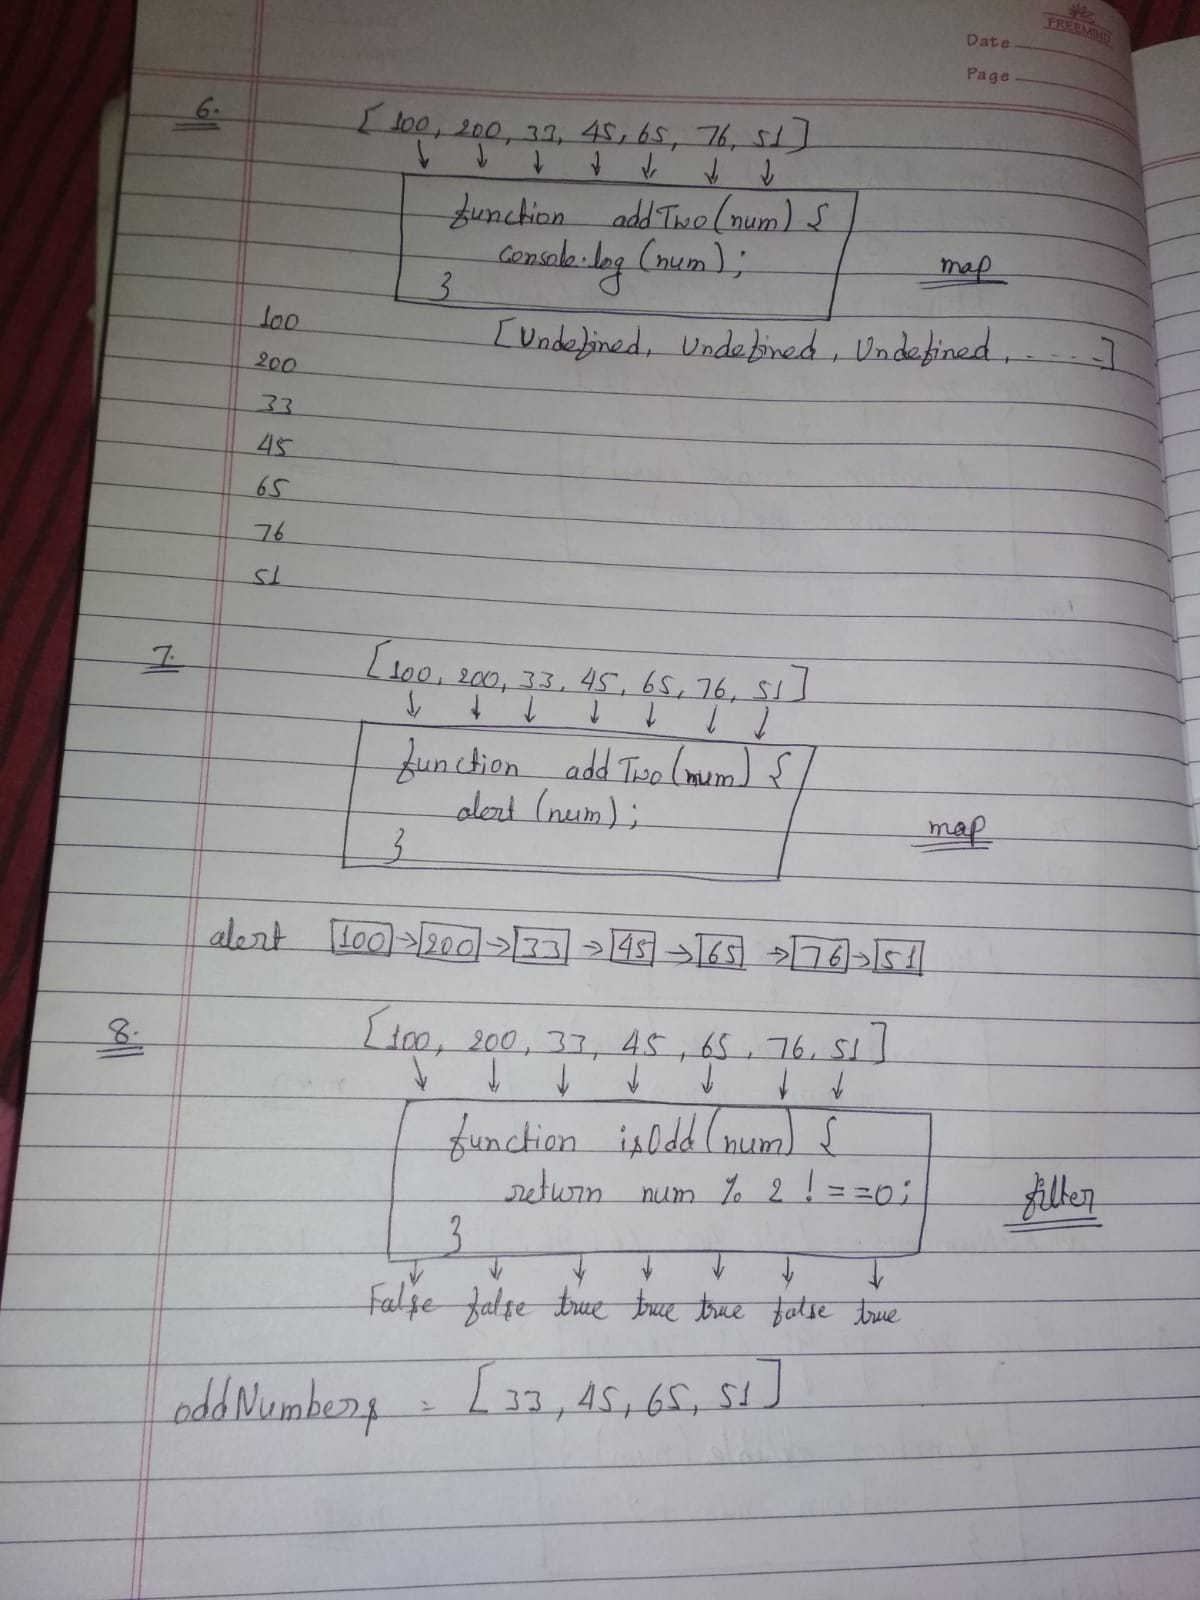 FREEMIND
Date
Page
6. [100, 200, 33, 45, 65, 76, 51]
↓ ↓ ↓ ↓ ↓ ↓ ↓
function addTwo(num) {
console.log(num);
}
map
100
[Undefined, Undefined, Undefined, - - - - -]
200
33
45
65
76
51
7. [100, 200, 33, 45, 65, 76, 51]
↓ ↓ ↓ ↓ ↓ ↓ ↓
function addTwo(num) {
alert(num);
}
map
alert 100 → 200 → 33 → 45 → 65 → 76 → 51
8. [100, 200, 33, 45, 65, 76, 51]
↓ ↓ ↓ ↓ ↓ ↓ ↓
function isOdd(num) {
return num % 2 !==0;
}
filter
↓ ↓ ↓ ↓ ↓ ↓ ↓
False false true true true false true
oddNumbers = [33, 45, 65, 51]